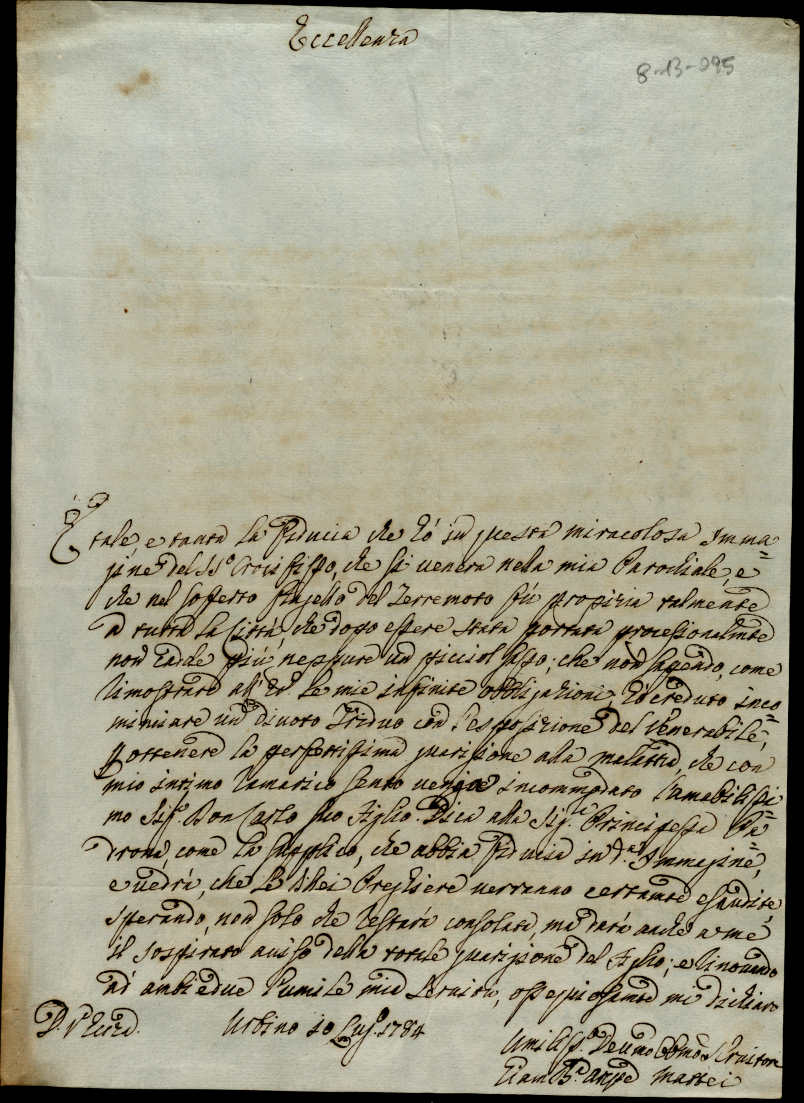 Eccellenza
8-13-995
È tale e tanta la Fiducia che hò in questa miracolosa Imma=
gine del SS.o Crocifisso, che si venera nella mia Parochiale, e
che nel sofferto flagello del Terremoto fù propizia talmente
a tutta la Città, che dopo essere stata portata procesionalmte
non cadde più neppure un picciol sasso; che non sapendo, come
dimostrare all' E.V. le mie infinite obbligazioni, hò creduto inco=
minciare un divoto Triduo con l'esposizione del Venerabile,
p ottenere la perfettissima guarigione alla malattia, che con
mio intimo ramarico sento venga incommodato l'amabilissi=
mo Sig.r Don Carlo suo Figlio. Dica alla Sig.ra Principessa Pa=
drona, come la supplico, che abbia fiducia in d.a Immagine,
e vedrà, che le di lei Preghiere verranno certamte esaudite,
sperando, non solo che restarà consolata, ma darà anche a me
il sospirato aviso della totale guarigione del Figlio; e rinovando
ad ambedue l'umile mia servitù, ossequiosamte mi dichiaro
D. V. Eccza.
Urbino 10 Lug.o 1784
Umiliss.o Devmo Obbmo Servitore
Giam B.a Mattei